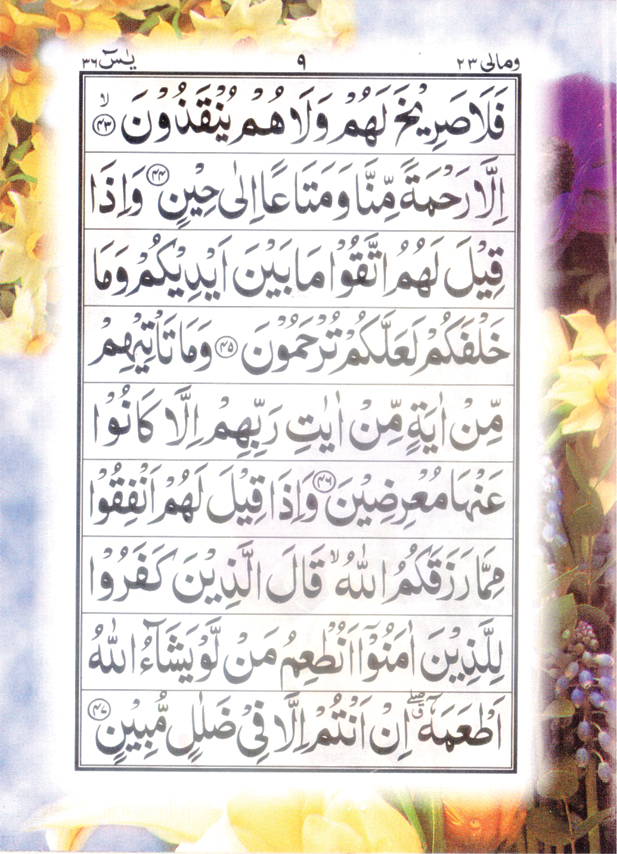 ومالی ۲۳ ۹ یٰسٓ ۳۶
فَلَا صَرِيْخَ لَهُمْ وَلَا هُمْ يُنْقَذُوْنَ ۙ﴿۴۳﴾
اِلَّا رَحْمَةً مِّنَّا وَمَتَاعًا اِلٰى حِيْنٍ ﴿۴۴﴾ وَاِذَا
قِيْلَ لَهُمُ اتَّقُوْا مَا بَيْنَ اَيْدِيْكُمْ وَمَا
خَلْفَكُمْ لَعَلَّكُمْ تُرْحَمُوْنَ ﴿۴۵﴾ وَمَا تَاْتِيْهِمْ
مِّنْ اٰيَةٍ مِّنْ اٰيٰتِ رَبِّهِمْ اِلَّا كَانُوْا
عَنْهَا مُعْرِضِيْنَ ﴿۴۶﴾ وَاِذَا قِيْلَ لَهُمْ اَنْفِقُوْا
مِمَّا رَزَقَكُمُ اللّٰهُ ۙ قَالَ الَّذِيْنَ كَفَرُوْا
لِلَّذِيْنَ اٰمَنُوْٓا اَنُطْعِمُ مَنْ لَّوْ يَشَآءُ اللّٰهُ
اَطْعَمَهٗٓ ۖق اِنْ اَنْتُمْ اِلَّا فِيْ ضَلٰلٍ مُّبِيْنٍ ﴿۴۷﴾